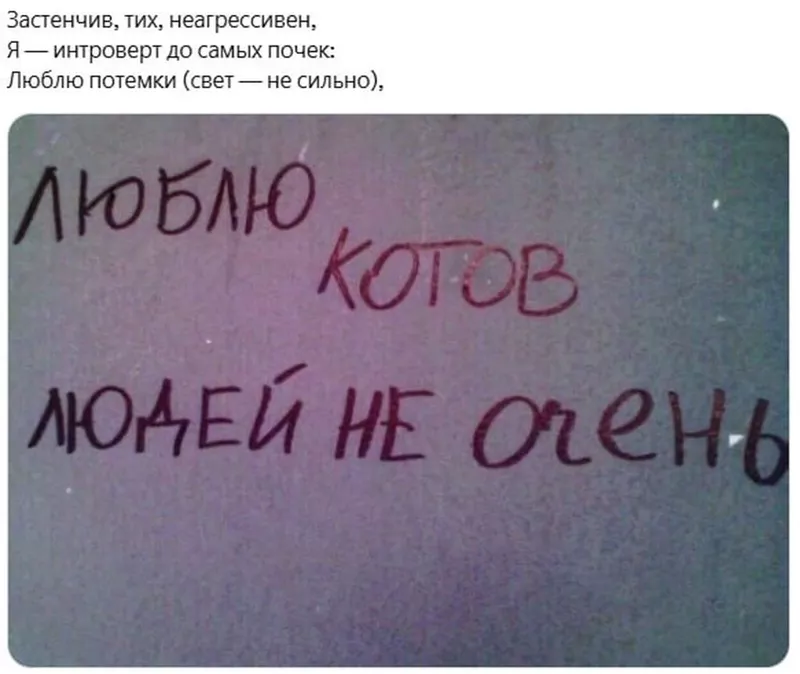 Застенчив, тих, неагрессивен,
Я — интроверт до самых почек:
Люблю потемки (свет — не сильно),
ЛЮБЛЮ
КОТОВ
ЛЮДЕЙ НЕ ОчеНЬ